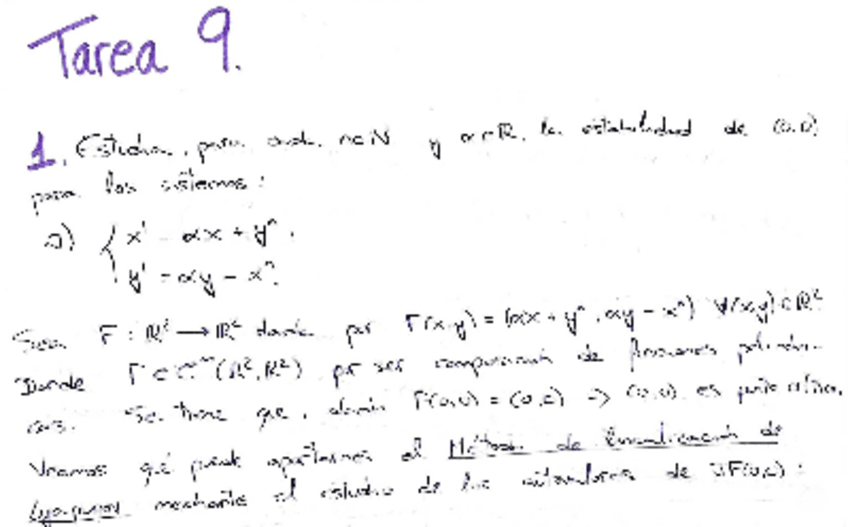 Tarea 9.
1. Estudiar, para cada n∈N y α∈R, la estabilidad de (0,0)
para los sistemas:
a) { x' = αx + yⁿ,
y' = αy - xⁿ.
Sea F: R² → R² dada por F(x,y) = (αx + yⁿ, αy - xⁿ) ∀(x,y)∈R²
Donde F∈C^∞(R²,R²) por ser composición de funciones polinómi-
cas. Se tiene que, además F(0,0) = (0,0) ⇒ (0,0) es punto crítico.
Veamos qué puede aportarnos el Método de linealización de
Lyapunov mediante el estudio de los autovalores de JF(0,0):